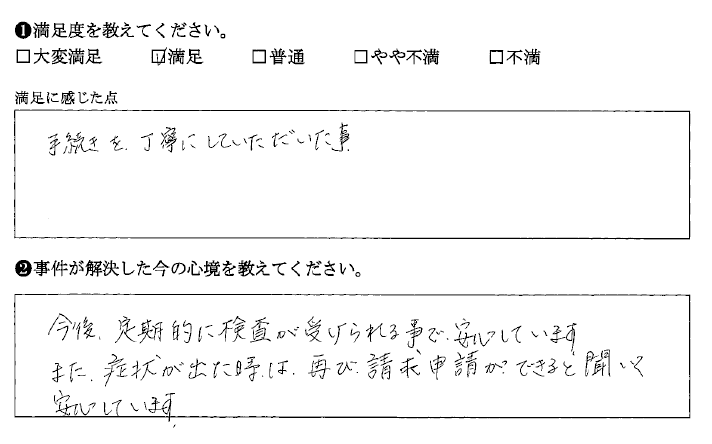 ❶満足度を教えてください。
□大変満足 ☑満足 □普通 □やや不満 □不満
満足に感じた点
手続きを、丁寧にしていただいた事
❷事件が解決した今の心境を教えてください。
今後、定期的に検査が受けられる事で、安心しています
また、症状が出た時は、再び、請求申請ができると聞いて
安心しています